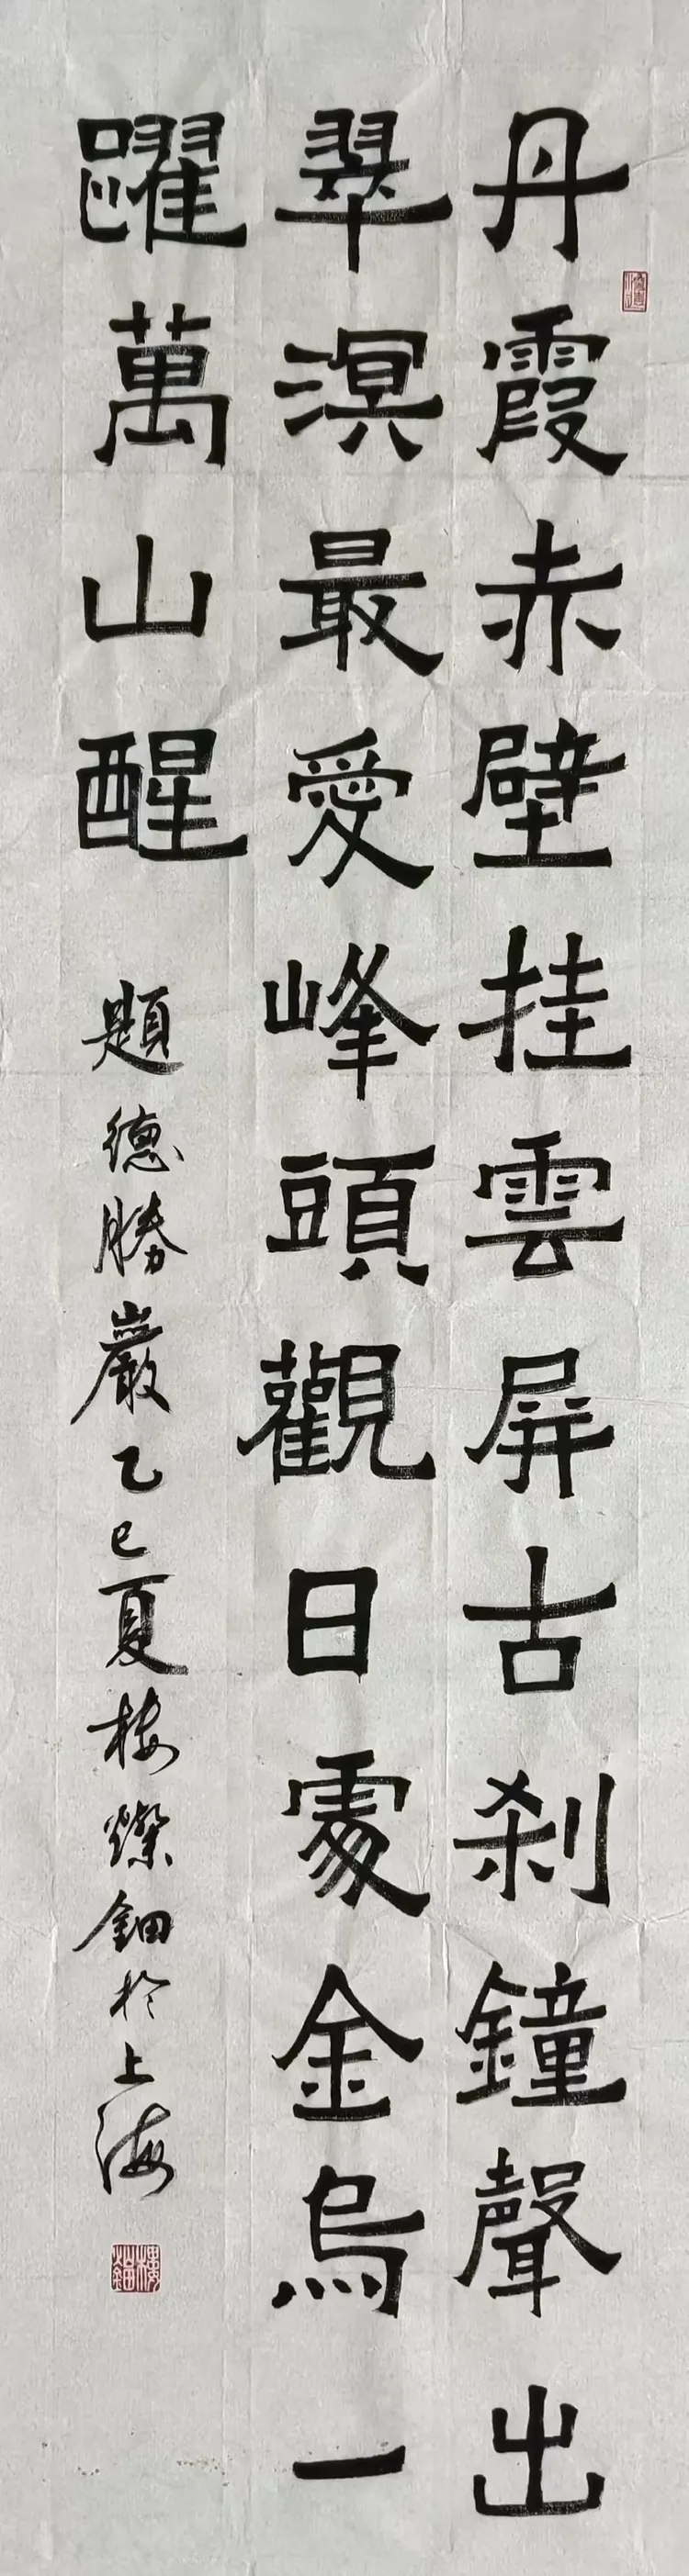 丹霞赤壁挂雲屏古刹鐘聲出
翠溟最愛峰頭觀日處金烏一
躍萬山醒
題德勝巖乙巳夏樓燦鈿於上海